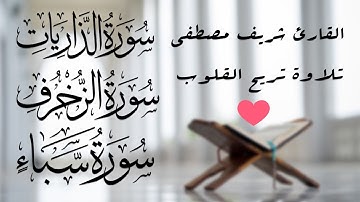 القارئ شريف مصطفى
تلاوة تريح القلوب
سُورَةُ الذَّارِيَات
سُورَةُ الزُّخْرُف
سُورَةُ سَبَأ